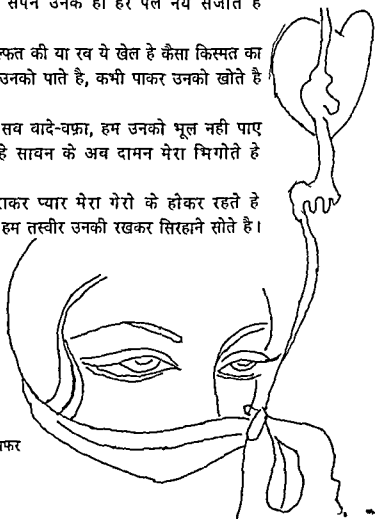 सपने उनके ही हर पल नये सजाते है
की या रब ये खेल हे कैसा किस्मत का
उनको पाते है, कभी पाकर उनको खोते है
सब वादे-वफ़ा, हम उनको भूल नही पाए
हे सावन के अब दामन मेरा भिगोते हे
प्यार मेरा गेरो के होकर रहते हे
हम तस्वीर उनकी रखकर सिरहाने सोते है।